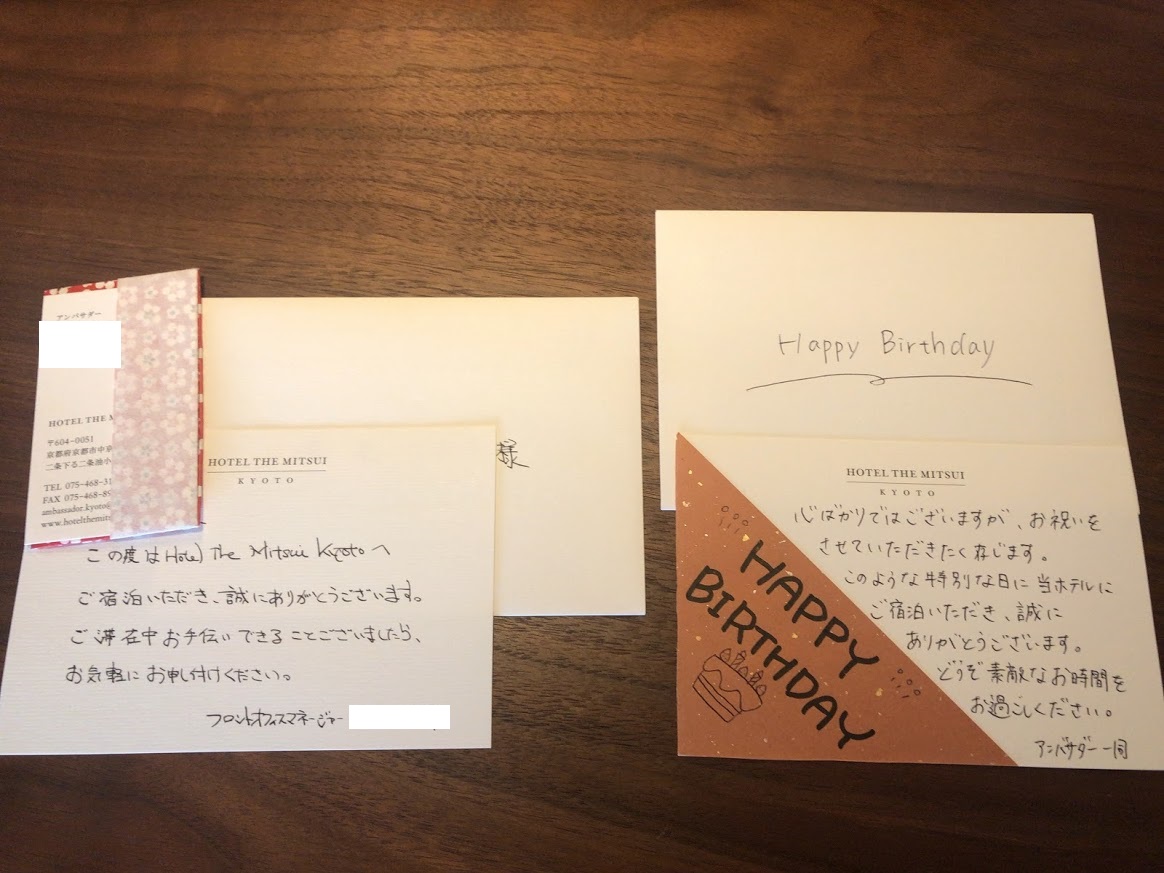 アンバサダー
HOTEL THE M
〒604-0051
京都府京都市中京
二条下る二条油小
TEL 075-468-31
FAX 075-468-89
ambassador.kyoto@
www.hotelthemits
様
HOTEL THE MITSUI
KYOTO
この度はHotel The Mitsui Kyotoへ
ご宿泊いただき、誠にありがとうございます。
ご滞在中お手伝いできることございましたら、
お気軽にお申し付けください。
フロントオフィスマネージャー
Happy Birthday
HOTEL THE MITSUI
KYOTO
心ばかりではございますが、お祝いを
させていただきたく存じます。
このような特別な日に当ホテルに
ご宿泊いただき、誠に
ありがとうございます。
どうぞ素敵なお時間を
お過ごしください。
アンバサダー一同
HAPPY
BIRTHDAY